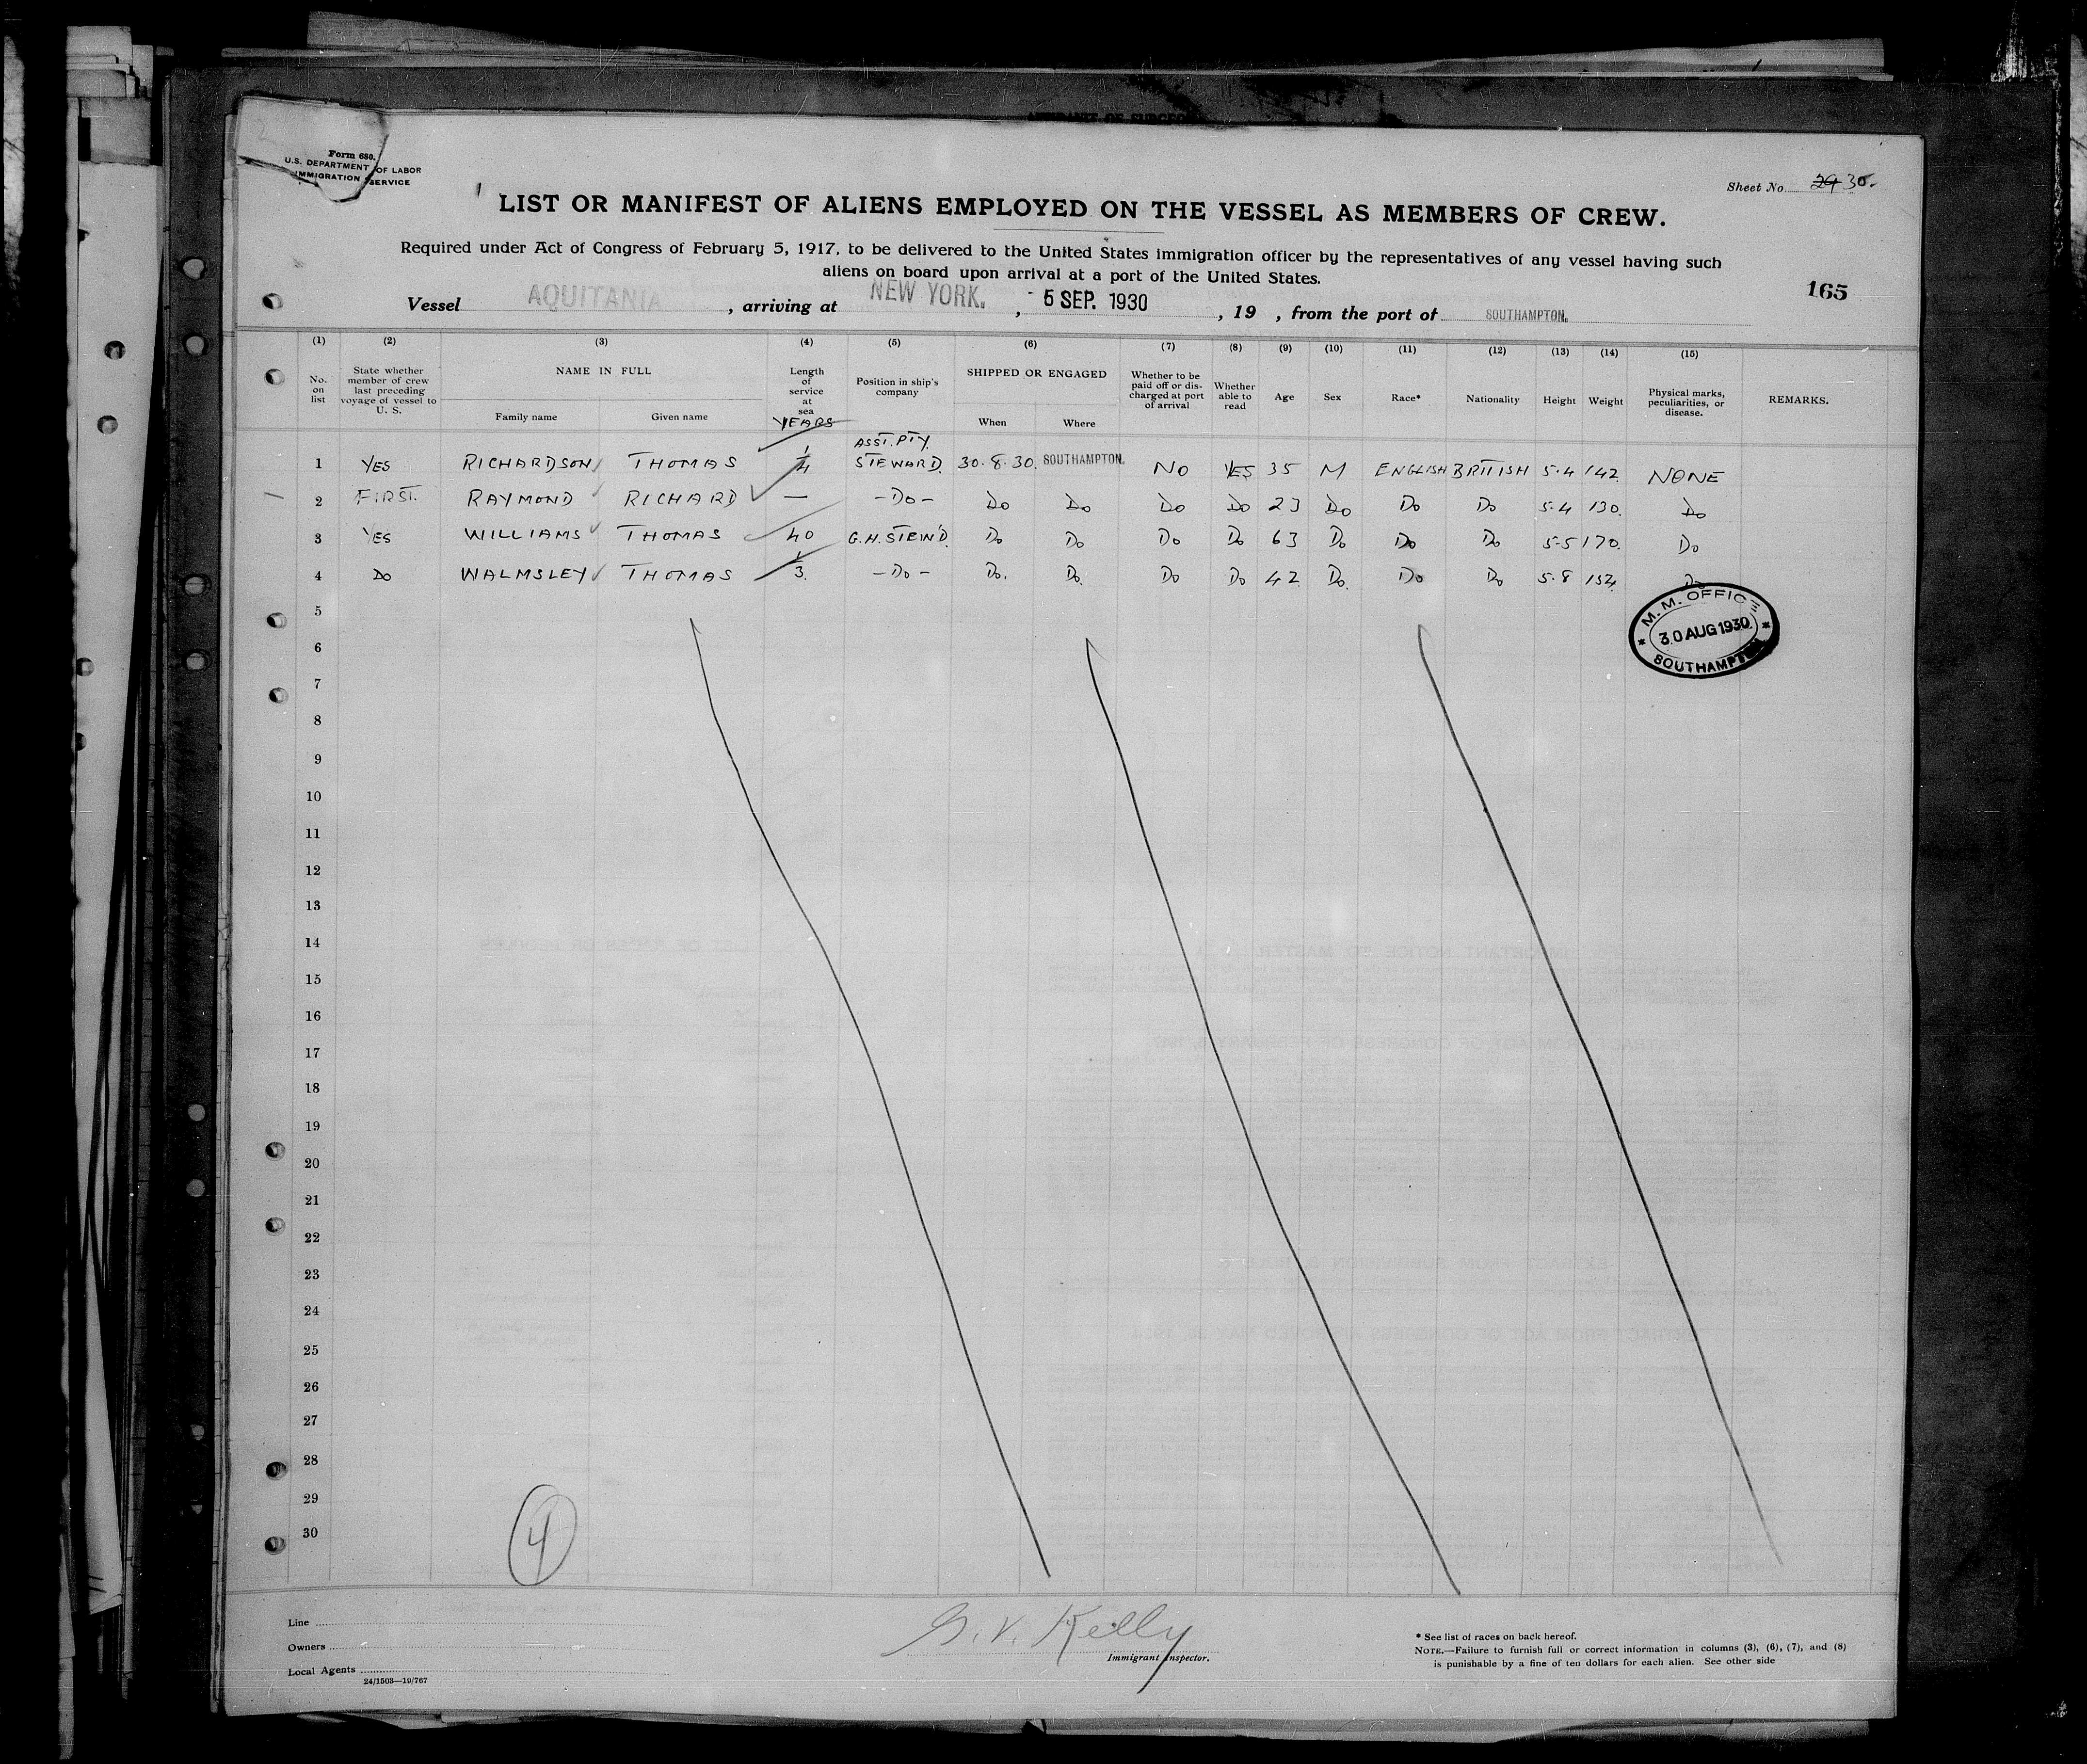 Form 680.
U.S. DEPARTMENT OF LABOR
IMMIGRATION SERVICE
Sheet No. 29 30.
LIST OR MANIFEST OF ALIENS EMPLOYED ON THE VESSEL AS MEMBERS OF CREW.
Required under Act of Congress of February 5, 1917, to be delivered to the United States immigration officer by the representatives of any vessel having such
aliens on board upon arrival at a port of the United States.
165
Vessel AQUITANIA, arriving at NEW YORK., 5 SEP. 1930, 19 , from the port of SOUTHAMPTON.
(1) (2) (3) (4) (5) (6) (7) (8) (9) (10) (11) (12) (13) (14) (15)
No. on list
State whether member of crew last preceding voyage of vessel to U. S.
NAME IN FULL
Family name
Given name
Length of service at sea
YEARS
Position in ship's company
SHIPPED OR ENGAGED
When
Where
Whether to be paid off or dis-charged at port of arrival
Whether able to read
Age
Sex
Race*
Nationality
Height
Weight
Physical marks, peculiarities, or disease.
REMARKS.
1 YES RICHARDSON THOMAS 1/4 ASST. PTY. STEWARD. 30.8.30. SOUTHAMPTON. NO YES 35 M ENGLISH BRITISH 5.4 142. NONE
2 FIRST. RAYMOND RICHARD — -Do- Do Do Do Do 23 Do Do Do 5.4 130. Do
3 YES WILLIAMS THOMAS 40 G.H. STEW'D. Do Do Do Do 63 Do Do Do 5.5 170. Do
4 Do WALMSLEY THOMAS 1/3. -Do- Do. Do. Do Do 42 Do. Do Do 5.8 154. Do
M. M. OFFICE
30 AUG 1930
SOUTHAMPTON
5
6
7
8
9
10
11
12
13
14
15
16
17
18
19
20
21
22
23
24
25
26
27
28
29
30
4
Line
Owners
Local Agents
24/1503—19/767
G. V. Kelly
Immigrant Inspector.
* See list of races on back hereof.
NOTE.—Failure to furnish full or correct information in columns (3), (6), (7), and (8)
is punishable by a fine of ten dollars for each alien. See other side